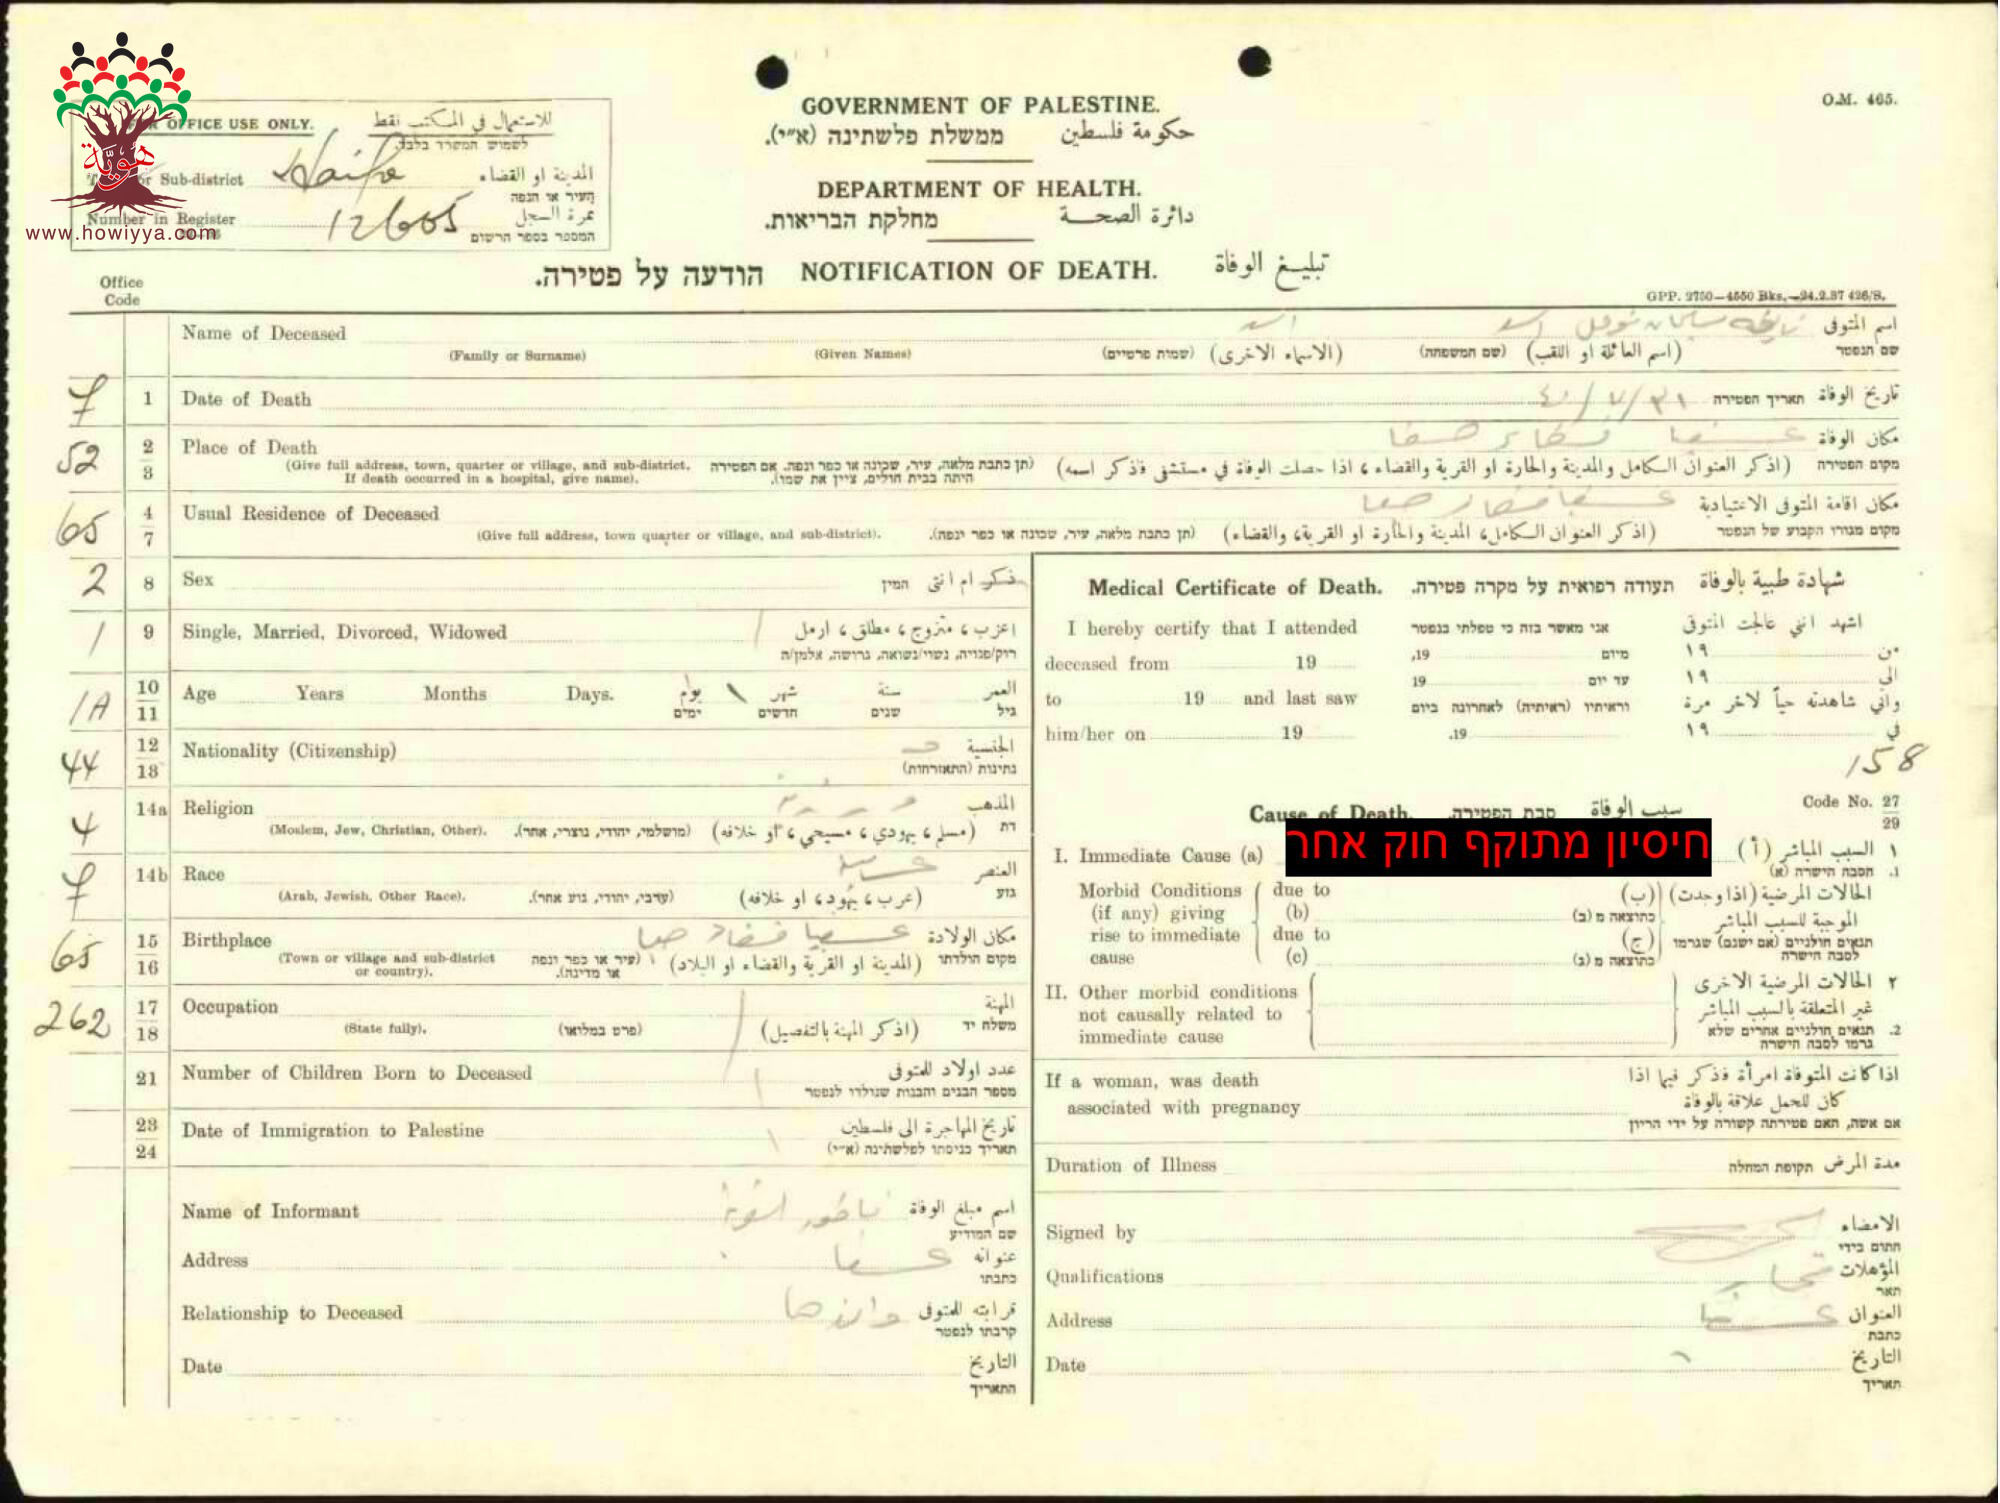 GOVERNMENT OF PALESTINE.
ממשלת פלשתינה (א״י). حكومة فلسطين
DEPARTMENT OF HEALTH.
מחלקת הבריאות. دائرة الصحة
הודעה על פטירה. NOTIFICATION OF DEATH. تبليغ الوفاة
O.M. 465.
GPP. 2750—4550 Bks.—24.2.37 426/S.
OFFICE USE ONLY. للاستعمال في المكتب فقط
לשמוש המשרד בלבד.
or Sub-district Haifa المدينة او القضاء
העיר או הנפה
Number in Register 12605 نمرة السجل
המספר בספר הרשום
هُوِيَّة
www.howiyya.com
Office
Code
Name of Deceased اسم المتوفى
שם הנפטר
(Family or Surname) (Given Names) (שמות פרטיים) (الاسماء الاخرى) (שם המשפחה) (اسم العائلة او اللقب)
7 1 Date of Death ٤٠/٧/٣١ תאריך הפטירה تاريخ الوفاة
52 2 3 Place of Death عسفيا قضاء حيفا مكان الوفاة
מקום הפטירה
(Give full address, town, quarter or village, and sub-district. (תן כתבת מלאה, עיר, שכונה או כפר ונפה. אם הפטירה
If death occurred in a hospital, give name). היתה בבית חולים, ציין את שמו).
(اذكر العنوان الكامل والمدينة والحارة او القرية والقضاء، اذا حصلت الوفاة في مستشفى فذكر اسمه)
65 4 7 Usual Residence of Deceased عسفيا قضاء حيفا مكان اقامة المتوفى الاعتيادية
מקום מגורו הקבוע של הנפטר
(Give full address, town quarter or village, and sub-district). (תן כתבת מלאה, עיר, שכונה או כפר ונפה). (اذكر العنوان الكامل، المدينة والحارة او القرية، والقضاء)
2 8 Sex המין ذكر ام انثى
1 9 Single, Married, Divorced, Widowed اعزب، متزوج، مطلق، ارمل
רוק/פנויה, נשוי/נשואה, גרושה, אלמן/ה
1A 10 11 Age Years Months Days. يوم ١ شهر سنة العمر
ימים חדשים שנים גיל
44 12 13 Nationality (Citizenship) الجنسية
נתינות (התאזרחות)
4 14a Religion المذهب
דת
(Moslem, Jew, Christian, Other). (מושלמי, יהודי, נוצרי, אחר). (مسلم، يهودي، مسيحي، او خلافه)
7 14b Race العنصر
גזע
(Arab, Jewish, Other Race). (ערבי, יהודי, גזע אחר). (عرب، يهود، او خلافه)
65 15 16 Birthplace عسفيا قضاء حيفا مكان الولادة
מקום הולדתו
(Town or village and sub-district (עיר או כפר ונפה
or country). או מדינה).
(المدينة او القرية والقضاء او البلاد)
262 17 18 Occupation المهنة
משלח יד
(State fully). (פרט במלואו) (اذكر المهنة بالتفصيل)
21 Number of Children Born to Deceased عدد اولاد للمتوفى
מספר הבנים והבנות שנולדו לנפטר
23 24 Date of Immigration to Palestine تاريخ المهاجرة الى فلسطين
תאריך כניסתו לפלשתינה (א״י)
Name of Informant اسم مبلغ الوفاة
שם המודיע
Address عسفيا عنوانه
כתבתו
Relationship to Deceased قرابته للمتوفى
קרבתו לנפטר
Date التاريخ
התאריך
Medical Certificate of Death. תעודה רפואית על מקרה פטירה. شهادة طبية بالوفاة
I hereby certify that I attended אני מאשר בזה כי טפלתי בנפטר اشهد انني عالجت المتوفى
deceased from 19 19, מיום ١٩ من
to 19 and last saw 19 עד יום ١٩ الى
וראיתיו (ראיתיה) לאחרונה ביום واني شاهدته حياً لاخر مرة
him/her on 19 19. ١٩ في
158
Code No. 27
29
Cause of Death. סבת הפטירה. سبب الوفاة
I. Immediate Cause (a) חיסיון מתוקף חוק אחר ١ السبب المباشر (أ)
1. הסבה הישרה (א)
Morbid Conditions due to الحالات المرضية (اذا وجدت) (ب)
(if any) giving (b) כתוצאה מ (ב) الموجبة للسبب المباشر
rise to immediate due to (ج) תנאים חולניים (אם ישנם) שגרמו
cause (c) כתוצאה מ (ג) לסבה הישרה
II. Other morbid conditions ٢ الحالات المرضية الاخرى
not causally related to غير المتعلقة بالسبب المباشر
immediate cause 2. תנאים חולניים אחרים שלא
גרמו לסבה הישרה
If a woman, was death اذا كانت المتوفاة امرأة فذكر فيما اذا
associated with pregnancy كان للحمل علاقة بالوفاة
אם אשה, האם פטירתה קשורה על ידי הריון
Duration of Illness תקופת המחלה مدة المرض
Signed by الامضاء
חתום בידי
Qualifications مختار المؤهلات
תאר
Address عسفيا العنوان
כתבת
Date التاريخ
תאריך